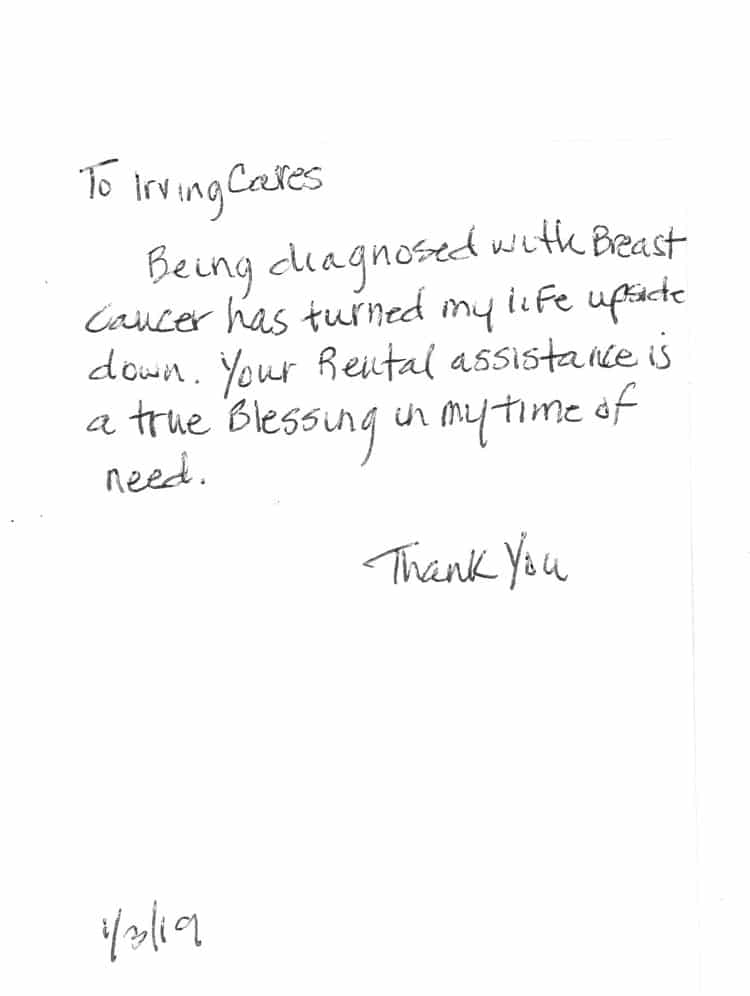 To Irving Cares
Being diagnosed with Breast
Cancer has turned my life upside
down. Your Rental assistance is
a true Blessing in my time of
need.
Thank You
1/3/19